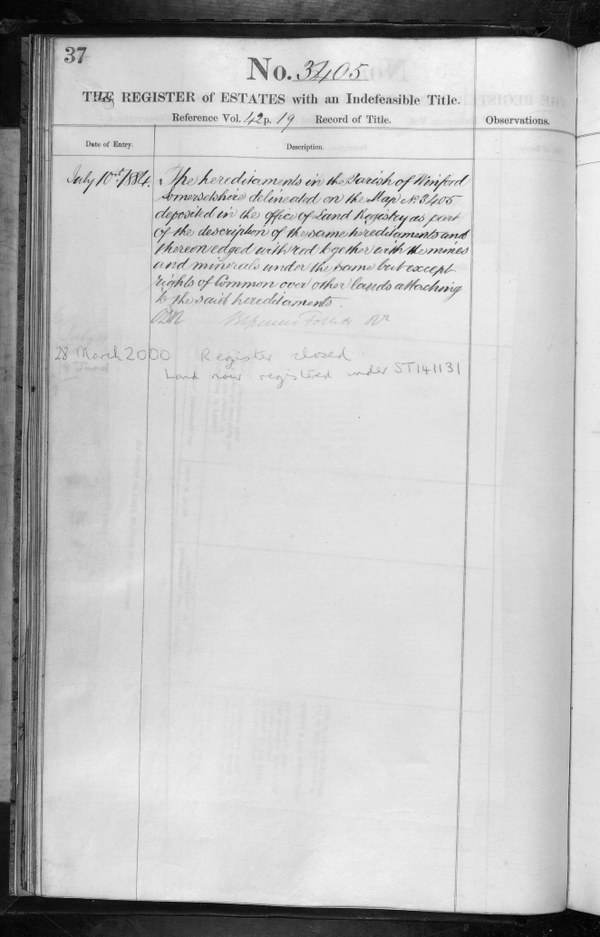 37
No. 3405
THE REGISTER of ESTATES with an Indefeasible Title.
Reference Vol. 42 p. 19 Record of Title.
Observations.
Date of Entry.
Description.
July 10th 1884. The hereditaments in the Parish of Winford
Somersetshire delineated on the Map No 3405
deposited in the office of Land Registry as part
of the description of the same hereditaments and
thereon edged with red together with the mines
and minerals under the same but except
rights of Common over other lands attaching
to the said hereditaments.
28 March 2000 Register closed
Land now registered under ST141131